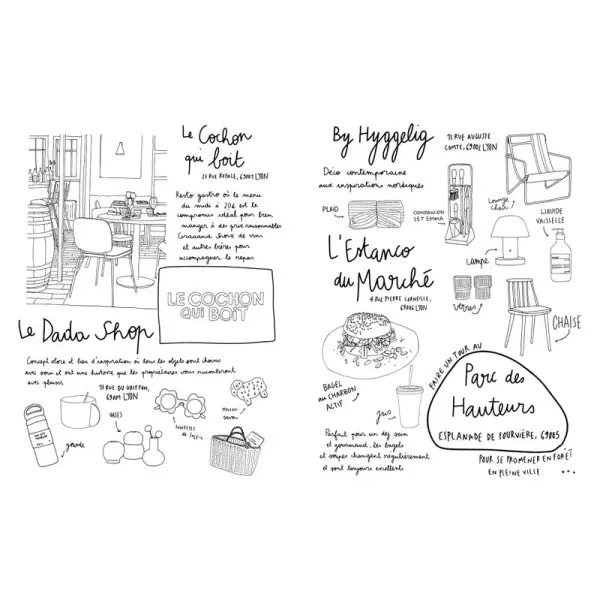 Le Cochon
qui boit
23 RUE ROYALE, 69001 LYON
Resto gastro où le menu
du midi à 20€ est le
compromis idéal pour bien
manger à des prix raisonnables
Grand choix de vins
et autres bières pour
accompagner le repas
LE COCHON
QUI BOIT
Le Dada Shop
Concept store et lieu d'inspiration où tous les objets sont choisis
avec soin et ont une histoire que les propriétaires vous raconteront
avec plaisir
RUE DU GRIFFON,
69001 LYON
gourde
VASES
LUNETTES
de soleil
By Hyggelig
RUE AUGUSTE
COMTE, 69002 LYON
Déco contemporaine
aux inspiration nordiques
PLAID
COMPANION
SET EMMA
Lounge
chair
LIQUIDE
VAISSELLE
Lampe
verres
CHAISE
L'Estanco
du Marché
4 RUE PIERRE CORNEILLE,
69006 LYON
BAGEL
AU CHARBON
ACTIF
jus
Parfait pour un dej sain
et gourmand, les bagels
et soupes changent régulièrement
et sont toujours excellents
FAIRE UN TOUR AU
Parc des
Hauteurs
ESPLANADE DE FOURVIÈRE, 69005
POUR SE PROMENER EN FORÊT
EN PLEINE VILLE ...